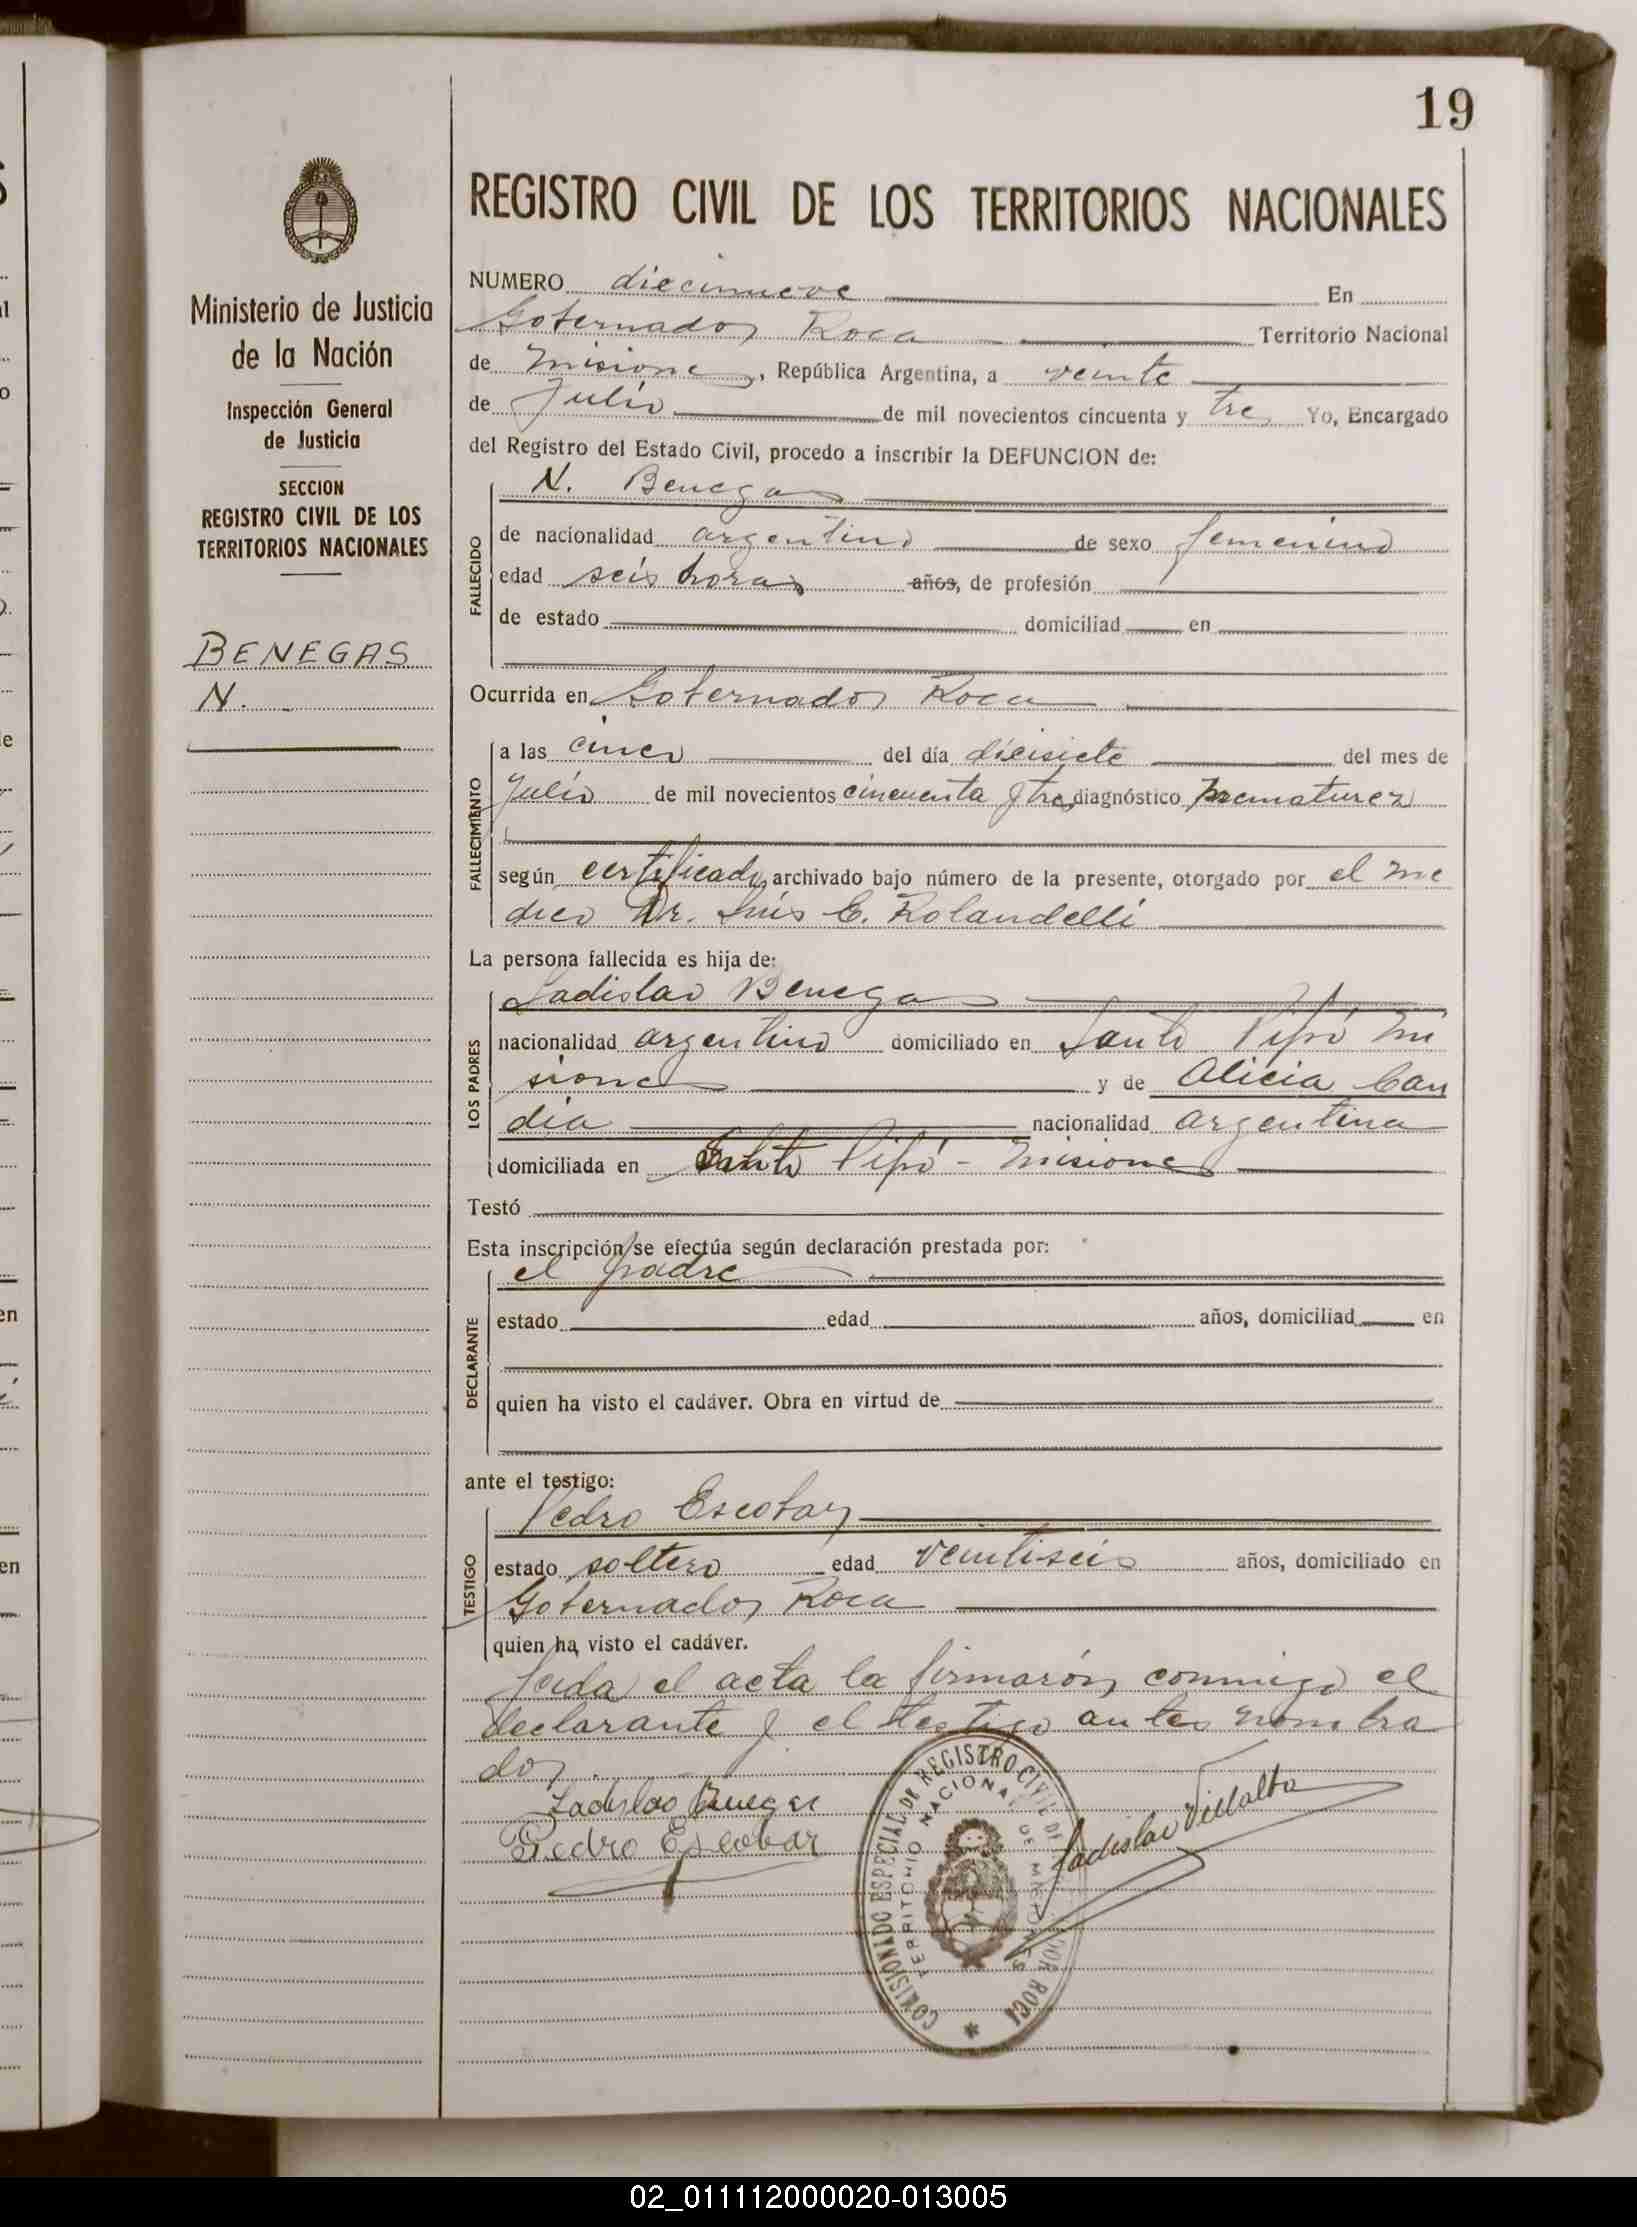 19
Ministerio de Justicia
de la Nación
Inspección General
de Justicia
SECCION
REGISTRO CIVIL DE LOS
TERRITORIOS NACIONALES
BENEGAS
N.
REGISTRO CIVIL DE LOS TERRITORIOS NACIONALES
NUMERO diecinueve En
Gobernador Roca Territorio Nacional
de Misiones, República Argentina, a veinte
de Julio de mil novecientos cincuenta y tres Yo, Encargado
del Registro del Estado Civil, procedo a inscribir la DEFUNCION de:
N. Benegas
FALLECIDO
de nacionalidad argentino de sexo femenino
edad seis horas años, de profesión
de estado domiciliad en
Ocurrida en Gobernador Roca
FALLECIMIENTO
a las cinco del día diecisiete del mes de
Julio de mil novecientos cincuenta y tres diagnóstico Prematurez
según certificado archivado bajo número de la presente, otorgado por el me
dico Dr. Luis E. Rolandelli
La persona fallecida es hija de:
LOS PADRES
Ladislao Benegas
nacionalidad argentino domiciliado en Santo Pipó Mi
siones y de Alicia Can
dia nacionalidad argentina
domiciliada en Santo Pipó - Misiones
Testó
Esta inscripción se efectúa según declaración prestada por:
DECLARANTE
el padre
estado edad años, domiciliad en
quien ha visto el cadáver. Obra en virtud de
ante el testigo:
TESTIGO
Pedro Escobar
estado soltero edad veintiseis años, domiciliado en
Gobernador Roca
quien ha visto el cadáver.
Leida el acta la firmarón conmigo el
declarante y el testigo antes nombra
dos.
Ladislao Benegas
Pedro Escobar
Ladislao Villalba
COMISIONADO ESPECIAL DE REGISTRO CIVIL DE ROCA
TERRITORIO NACIONAL DE MISIONES
02_011112000020-013005